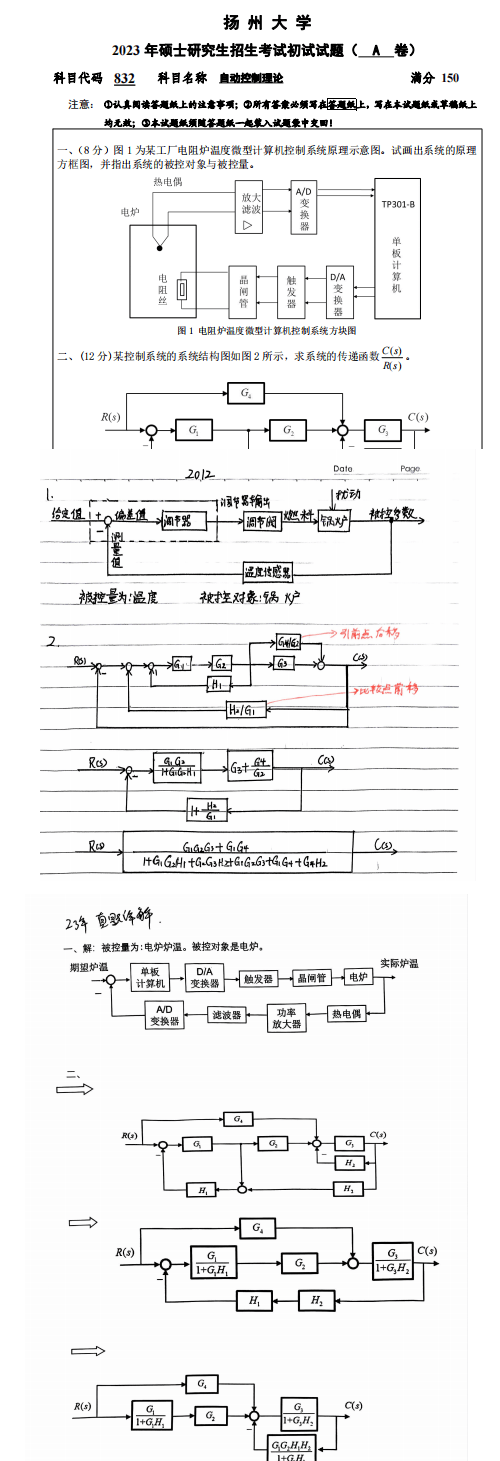 扬 州 大 学
2023 年硕士研究生招生考试初试试题（ A 卷）
科目代码 832 科目名称 自动控制理论 满分 150
注意： ①认真阅读答题纸上的注意事项；②所有答案必须写在答题纸上，写在本试题纸或草稿纸上
均无效；③本试题纸须随答题纸一起装入试题袋中交回！
一、（8 分）图 1 为某工厂电阻炉温度微型计算机控制系统原理示意图。试画出系统的原理
方框图，并指出系统的被控对象与被控量。
热电偶
电炉
放大
滤波
A/D
变
换
器
TP301-B
单
板
计
算
机
电
阻
丝
晶
闸
管
触
发
器
D/A
变
换
器
图 1 电阻炉温度微型计算机控制系统方块图
二、(12 分)某控制系统的系统结构图如图 2 所示，求系统的传递函数 C(s)/R(s) 。
G₄
R(s) G₁ G₂ G₃ C(s)
2012 Date Page
1.
给定值 + 偏差值 调节器 调节器输出 调节阀 燃料 锅炉 扰动 被控参数
测
量
值
温度传感器
被控量为:温度 被控对象:锅炉
2.
G4/G2 引前点后移
R(s) G1 G2 G3 C(s)
H1
H2/G1 比较点前移
R(s) G1G2/1+G1G2H1 G3+G4/G2 C(s)
1+H2/G1
R(s) G1G2G3+G1G4 C(s)
1+G1G2H1+G2G3H2+G1G2G3+G1G4+G4H2
23年真题详解.
一、解: 被控量为:电炉炉温。被控对象是电炉。
期望炉温 单板
计算机 D/A
变换器 触发器 晶闸管 电炉 实际炉温
A/D
变换器 滤波器 功率
放大器 热电偶
二、
G₄
R(s) G₁ G₂ G₃ C(s)
H₁
G₄
R(s) G₁/1+G₁H₁ G₂ G₃/1+G₃H₂ C(s)
H₁ H₂
G₄
R(s) G₂ C(s)